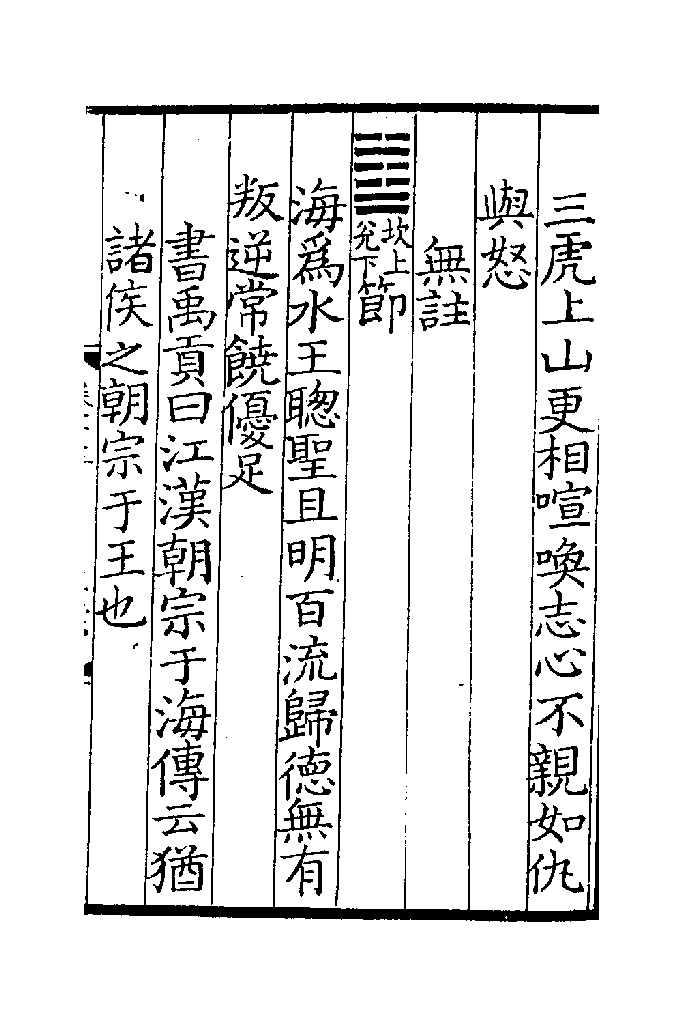 三虎上山更相喧喚志心不親如仇
與怒
無註
䷻坎上兌下節
海為水王聰聖且明百流歸德無有
叛逆常饒優足
書禹貢曰江漢朝宗于海傳云猶
諸侯之朝宗于王也